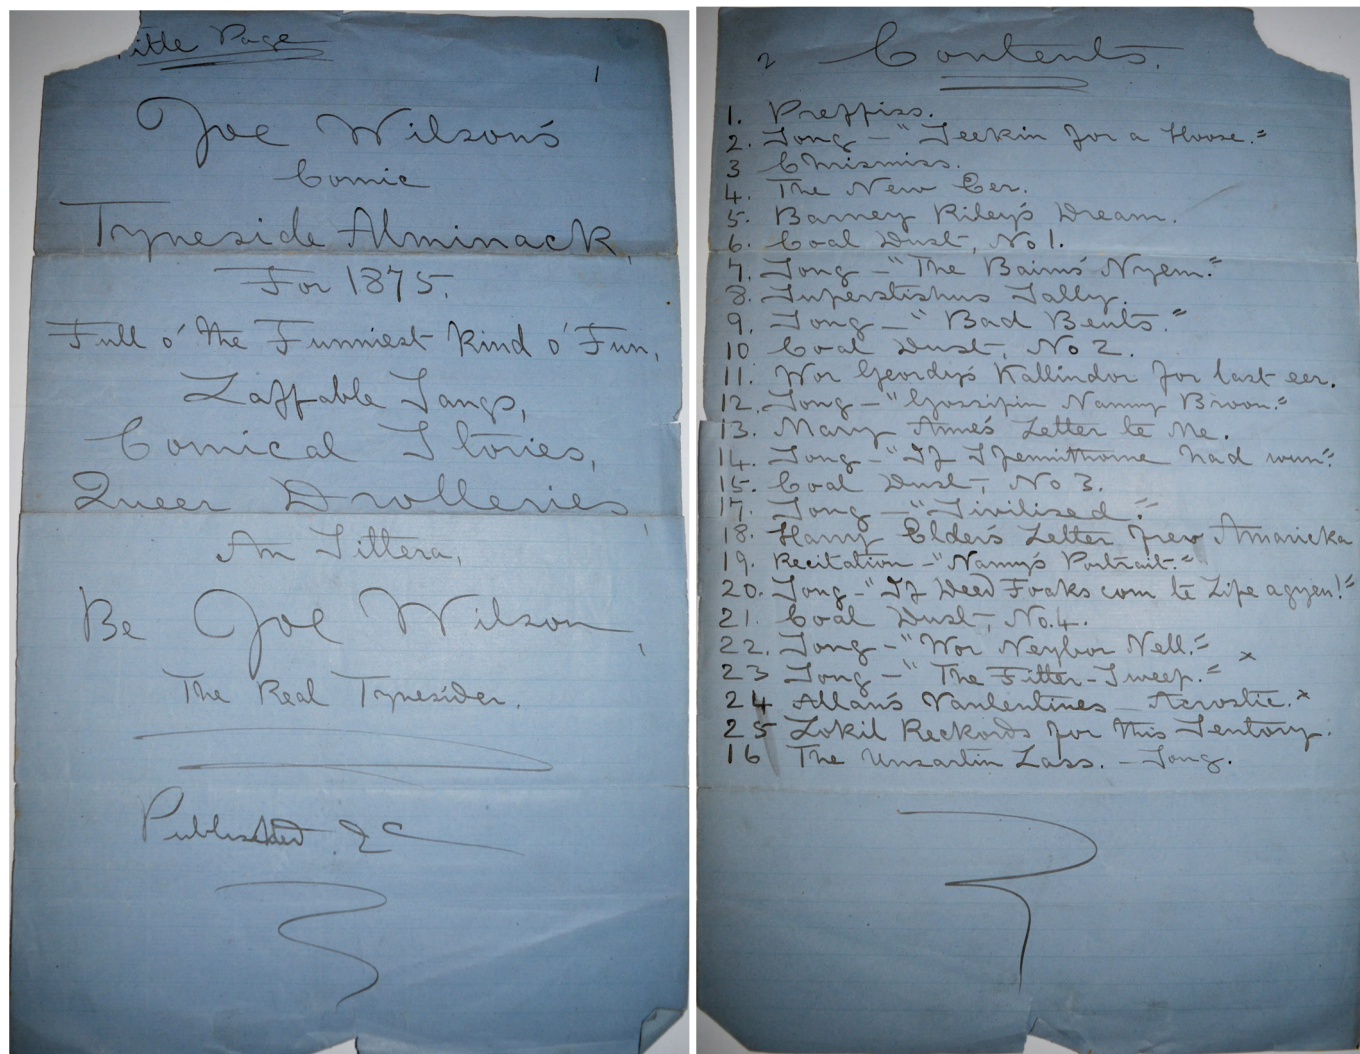 Title Page
1
Joe Wilson's
Comic
Tyneside Alminack,
For 1875.
Full o' the Funniest Kind o' Fun,
Laffable Sangs,
Comical Stories,
Queer Drolleries
An Sittera,
Be Joe Wilson,
The Real Tynesider.
Published &c
2 Contents.
1. Preffiss.
2. Song - "Seekin for a Hoose."
3 Chrismiss.
4. The New Eer.
5. Barney Riley's Dream.
6. Coal Dust, No 1.
7. Song - "The Bairn's Nyem."
8. Superstishus Sally.
9. Song - "Bad Bents."
10 Coal Dust, No 2.
11. Wor Geordy's Kallindor for last eer.
12. Song - "Gossipin Nanny Broon."
13. Mary Anne's Letter te Me.
14. Song - "If Spennithorne had wun".
15. Coal Dust, No 3.
17. Song - "Sivilised."
18. Harry Elder's Letter frev Amaricka
19. Recitation - "Nanny's Portrait."
20. Song - "If Deed Foaks com te Life agyen!"
21. Coal Dust, No. 4.
22. Song - "Wor Neybor Nell."
23 Song - "The Fitter-Sweep." x
24 Allan's Vanlentines Acrostic. x
25 Lokil Reckords for this Sentory.
16 The Unsartin Lass. - Song.